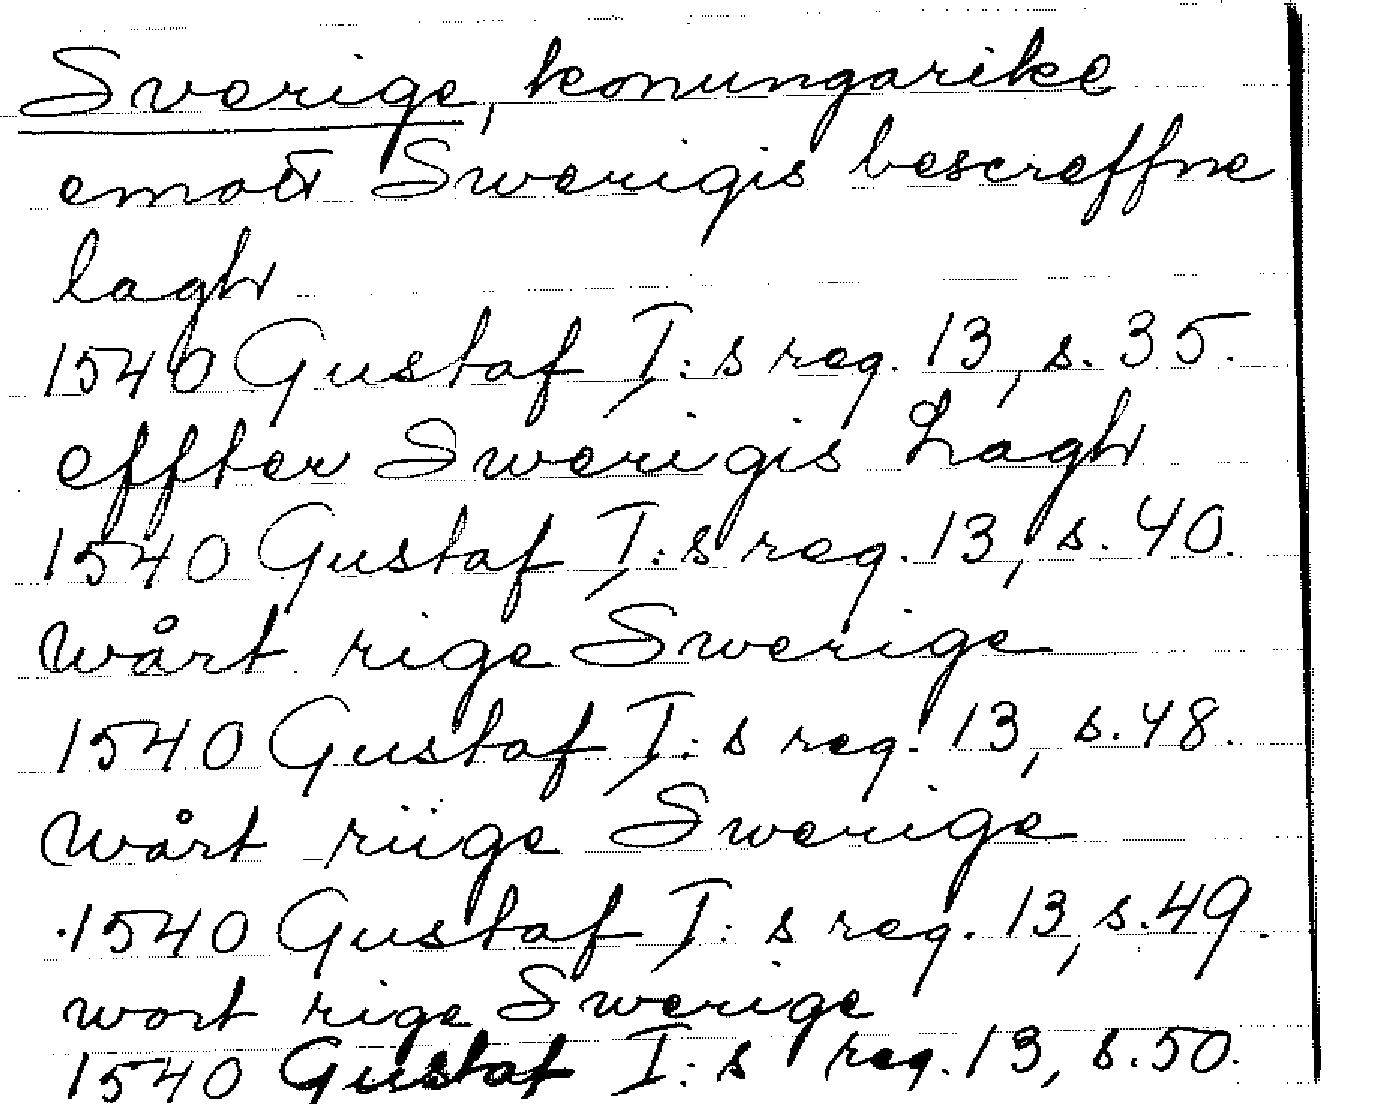 Sverige, konungarike
emott Swerigis bescreffne
lagh
1540 Gustaf I:s reg. 13, s. 35.
effter Swerigis Lagh
1540 Gustaf I:s reg. 13, s. 40.
Wårt rige Swerige
1540 Gustaf I:s reg. 13, s. 48.
Wårt riige Swerige
1540 Gustaf I:s reg. 13, s. 49.
wort rige Swerige
1540 Gustaf I:s reg. 13, s. 50.